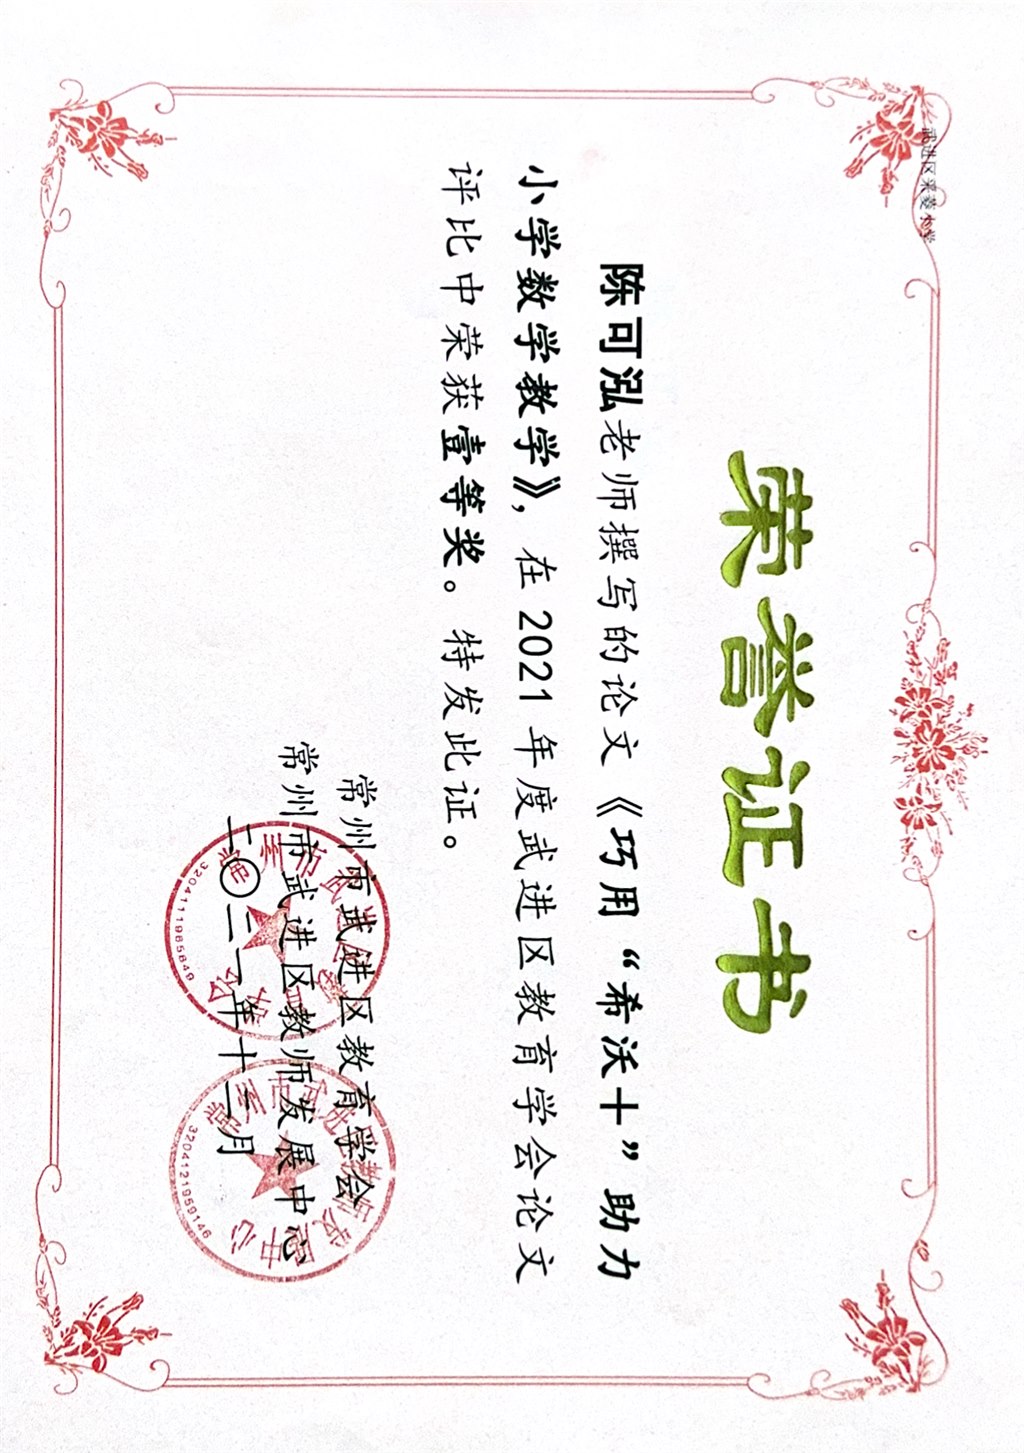 武进区采菱小学
荣誉证书
陈可泓老师撰写的论文《巧用“希沃十”助力
小学数学教学》，在 2021 年度武进区教育学会论文
评比中荣获壹等奖。特发此证。
常州市武进区教育学会
常州市武进区教师发展中心
二〇二一年十二月
3204111965649
3204121959146